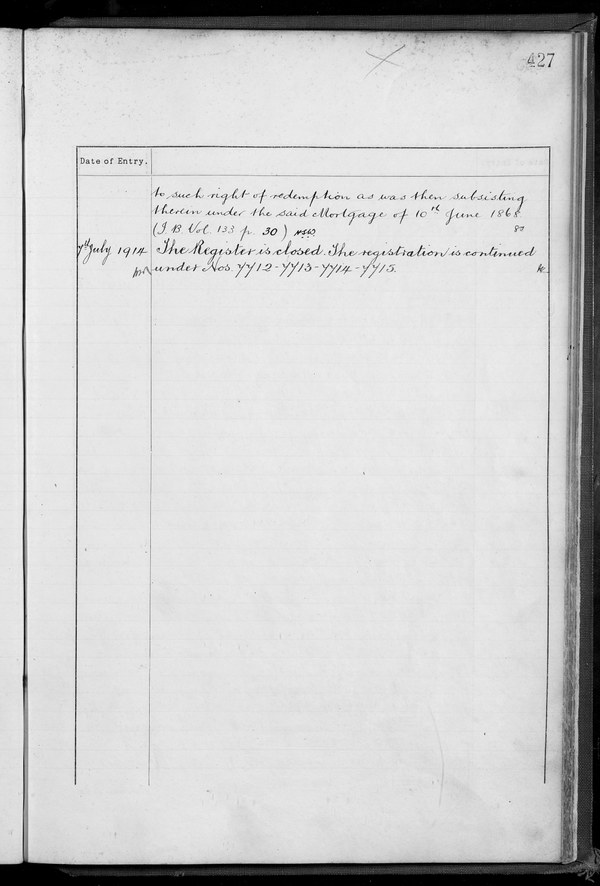 427
Date of Entry.
to such right of redemption as was then subsisting
therein under the said Mortgage of 10th June 1868.
(I B Vol. 133 p. 30)
7th July 1914 The Register is closed. The registration is continued
under Nos. 7712-7713-7714-7715.